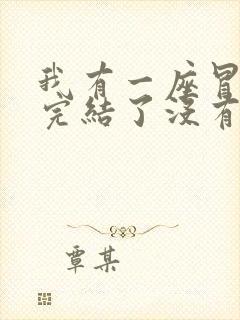 我有一座冒
完結了沒有
覃某